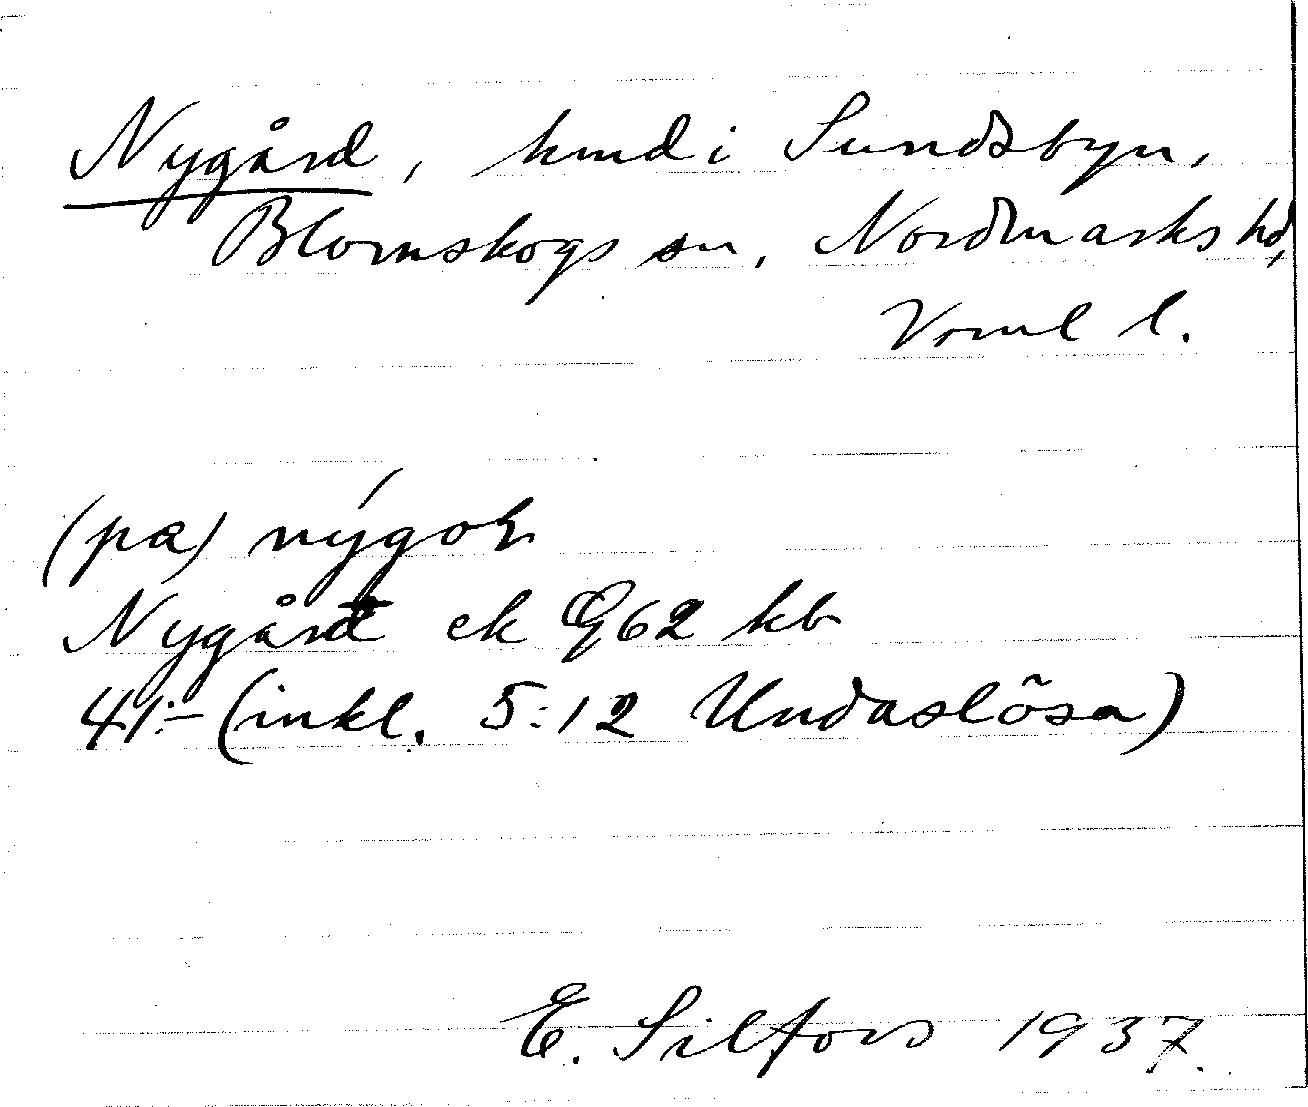 Nygård, hmd i Sundsbyn,
Blomskogs sn, Nordmarks hd,
Vrml l.
(pa) nýgoɽ
Nygård ek G62 kb
41:- (inkl. 5:12 Undaslösa)
E. Silfors 1937.